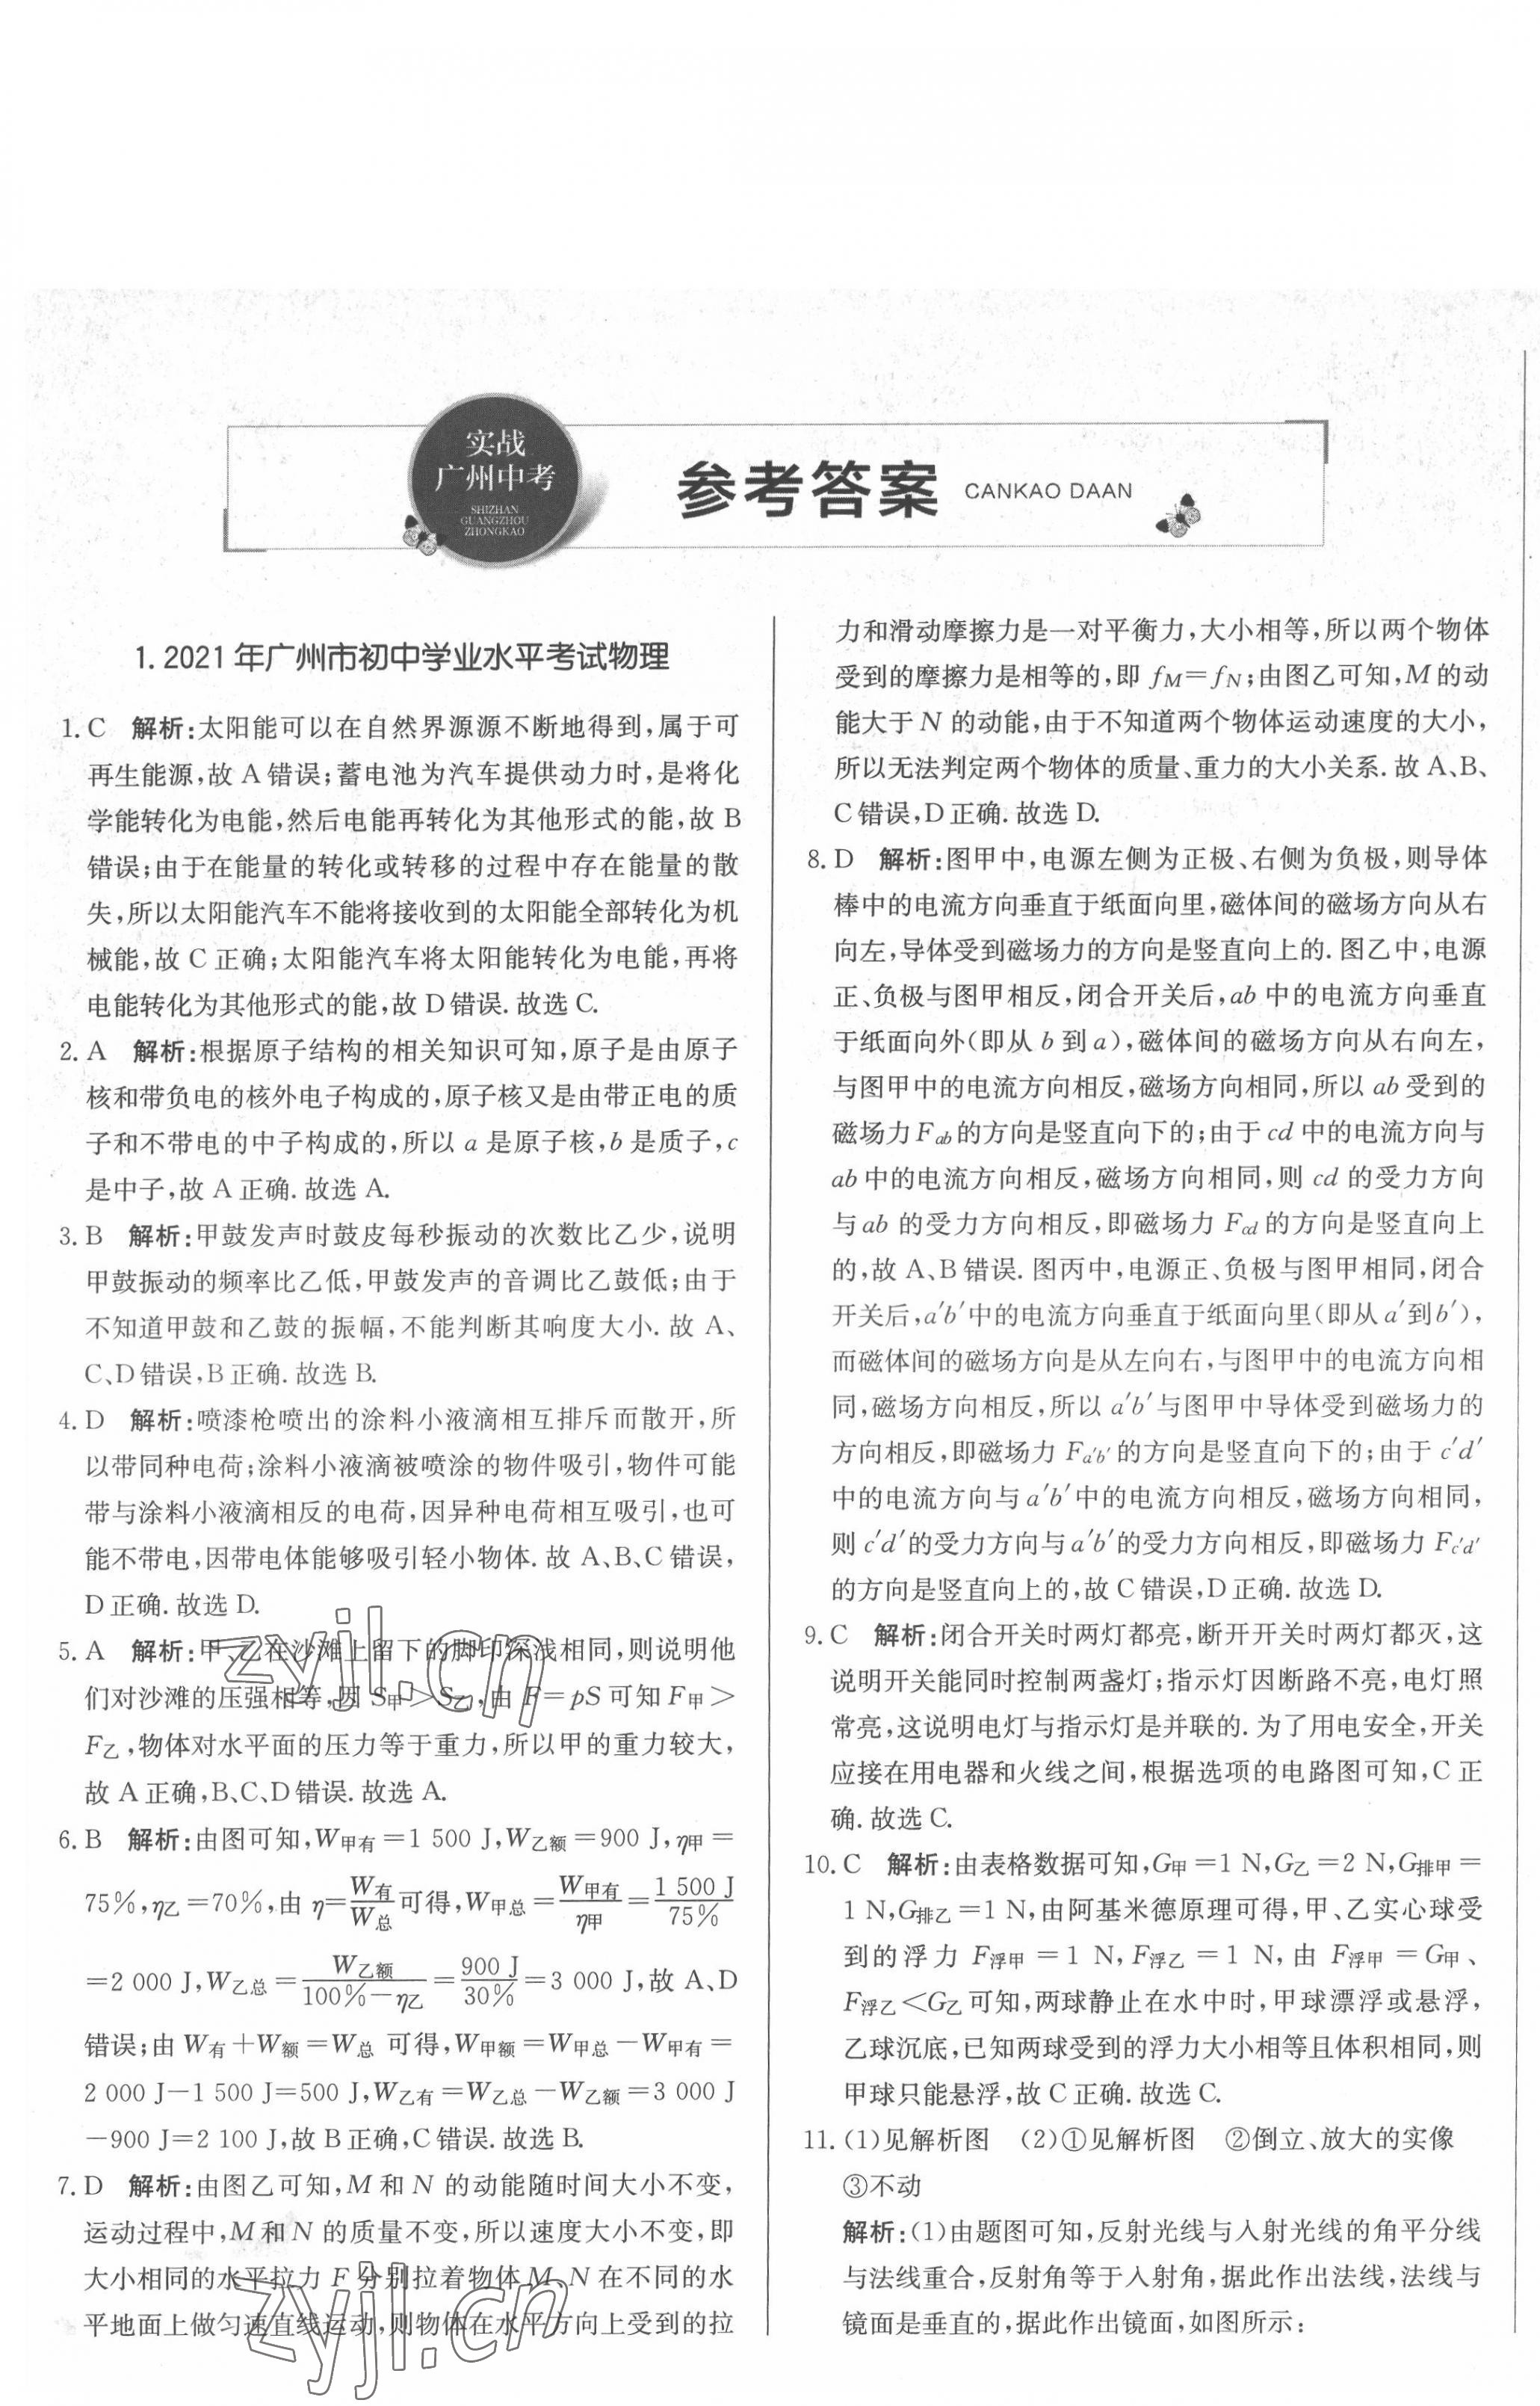 实战
广州中考
SHIZHAN
GUANGZHOU
ZHONGKAO
参考答案 CANKAO DAAN
1. 2021年广州市初中学业水平考试物理
1. C 解析:太阳能可以在自然界源源不断地得到,属于可
再生能源,故 A 错误;蓄电池为汽车提供动力时,是将化
学能转化为电能,然后电能再转化为其他形式的能,故 B
错误;由于在能量的转化或转移的过程中存在能量的散
失,所以太阳能汽车不能将接收到的太阳能全部转化为机
械能,故 C 正确;太阳能汽车将太阳能转化为电能,再将
电能转化为其他形式的能,故 D 错误. 故选 C.
2. A 解析:根据原子结构的相关知识可知,原子是由原子
核和带负电的核外电子构成的,原子核又是由带正电的质
子和不带电的中子构成的,所以 a 是原子核,b 是质子,c
是中子,故 A 正确. 故选 A.
3. B 解析:甲鼓发声时鼓皮每秒振动的次数比乙少,说明
甲鼓振动的频率比乙低,甲鼓发声的音调比乙鼓低;由于
不知道甲鼓和乙鼓的振幅,不能判断其响度大小. 故 A、
C、D 错误,B 正确. 故选 B.
4. D 解析:喷漆枪喷出的涂料小液滴相互排斥而散开,所
以带同种电荷;涂料小液滴被喷涂的物件吸引,物件可能
带与涂料小液滴相反的电荷,因异种电荷相互吸引,也可
能不带电,因带电体能够吸引轻小物体. 故 A、B、C 错误,
D 正确. 故选 D.
5. A 解析:甲、乙在沙滩上留下的脚印深浅相同,则说明他
们对沙滩的压强相等,因 S甲＞S乙,由 F＝pS 可知 F甲＞
F乙,物体对水平面的压力等于重力,所以甲的重力较大,
故 A 正确,B、C、D 错误. 故选 A.
6. B 解析:由图可知,W甲有＝1 500 J,W乙额＝900 J,η甲＝
75%,η乙＝70%,由 η＝W有/W总 可得,W甲总＝W甲有/η甲＝1 500 J/75%
＝2 000 J,W乙总＝W乙额/(100%－η乙)＝900 J/30%＝3 000 J,故 A、D
错误;由 W有＋W额＝W总 可得,W甲额＝W甲总－W甲有＝
2 000 J－1 500 J＝500 J,W乙有＝W乙总－W乙额＝3 000 J
－900 J＝2 100 J,故 B 正确,C 错误. 故选 B.
7. D 解析:由图乙可知,M 和 N 的动能随时间大小不变,
运动过程中,M 和 N 的质量不变,所以速度大小不变,即
大小相同的水平拉力 F 分别拉着物体 M、N 在不同的水
平地面上做匀速直线运动,则物体在水平方向上受到的拉
力和滑动摩擦力是一对平衡力,大小相等,所以两个物体
受到的摩擦力是相等的,即 fM＝fN;由图乙可知,M 的动
能大于 N 的动能,由于不知道两个物体运动速度的大小,
所以无法判定两个物体的质量、重力的大小关系. 故 A、B、
C 错误,D 正确. 故选 D.
8. D 解析:图甲中,电源左侧为正极、右侧为负极,则导体
棒中的电流方向垂直于纸面向里,磁体间的磁场方向从右
向左,导体受到磁场力的方向是竖直向上的. 图乙中,电源
正、负极与图甲相反,闭合开关后,ab 中的电流方向垂直
于纸面向外(即从 b 到 a),磁体间的磁场方向从右向左,
与图甲中的电流方向相反,磁场方向相同,所以 ab 受到的
磁场力 Fab 的方向是竖直向下的;由于 cd 中的电流方向与
ab 中的电流方向相反,磁场方向相同,则 cd 的受力方向
与 ab 的受力方向相反,即磁场力 Fcd 的方向是竖直向上
的,故 A、B 错误. 图丙中,电源正、负极与图甲相同,闭合
开关后,a′b′中的电流方向垂直于纸面向里(即从 a′到 b′),
而磁体间的磁场方向是从左向右,与图甲中的电流方向相
同,磁场方向相反,所以 a′b′与图甲中导体受到磁场力的
方向相反,即磁场力 Fa′b′的方向是竖直向下的;由于 c′d′
中的电流方向与 a′b′中的电流方向相反,磁场方向相同,
则 c′d′的受力方向与 a′b′的受力方向相反,即磁场力 Fc′d′
的方向是竖直向上的,故 C 错误,D 正确. 故选 D.
9. C 解析:闭合开关时两灯都亮,断开开关时两灯都灭,这
说明开关能同时控制两盏灯;指示灯因断路不亮,电灯照
常亮,这说明电灯与指示灯是并联的. 为了用电安全,开关
应接在用电器和火线之间,根据选项的电路图可知,C 正
确. 故选 C.
10. C 解析:由表格数据可知,G甲＝1 N,G乙＝2 N,G排甲＝
1 N,G排乙＝1 N,由阿基米德原理可得,甲、乙实心球受
到的浮力 F浮甲＝1 N,F浮乙＝1 N,由 F浮甲＝G甲、
F浮乙＜G乙可知,两球静止在水中时,甲球漂浮或悬浮,
乙球沉底,已知两球受到的浮力大小相等且体积相同,则
甲球只能悬浮,故 C 正确. 故选 C.
11. (1)见解析图 (2)①见解析图 ②倒立、放大的实像
③不动
解析:(1)由题图可知,反射光线与入射光线的角平分线
与法线重合,反射角等于入射角,据此作出法线,法线与
镜面是垂直的,据此作出镜面,如图所示:
zyjl.cn
zyjl.cn